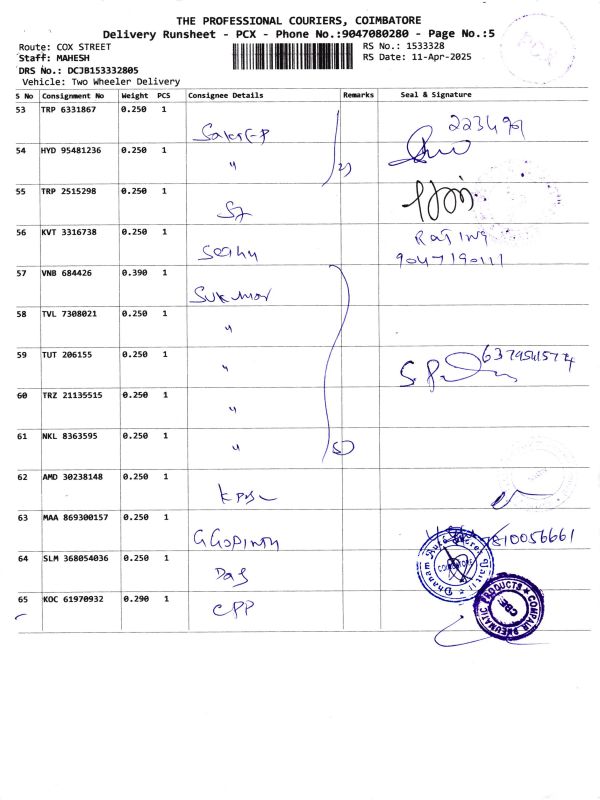 THE PROFESSIONAL COURIERS, COIMBATORE
Delivery Runsheet - PCX - Phone No.:9047080280 - Page No.:5
Route: COX STREET
RS No.: 1533328
Staff: MAHESH
RS Date: 11-Apr-2025
DRS No.: DCJB153332805
Vehicle: Two Wheeler Delivery
PCX
S No Consignment No Weight PCS Consignee Details Remarks Seal & Signature
53 TRP 6331867 0.250 1
54 HYD 95481236 0.250 1 "
55 TRP 2515298 0.250 1
56 KVT 3316738 0.250 1 RATING
9047190111
57 VNB 684426 0.390 1 Sukumar
58 TVL 7308021 0.250 1 "
59 TUT 206155 0.250 1 "
60 TRZ 21135515 0.250 1 "
61 NKL 8363595 0.250 1 " 5
62 AMD 30238148 0.250 1
63 MAA 869300157 0.250 1 G Gopinth 7810056661
64 SLM 368054036 0.250 1 Das
COIMBATORE
65 KOC 61970932 0.290 1 CPP
COMPAIR PNEUMATIC PRODUCTS
CBE